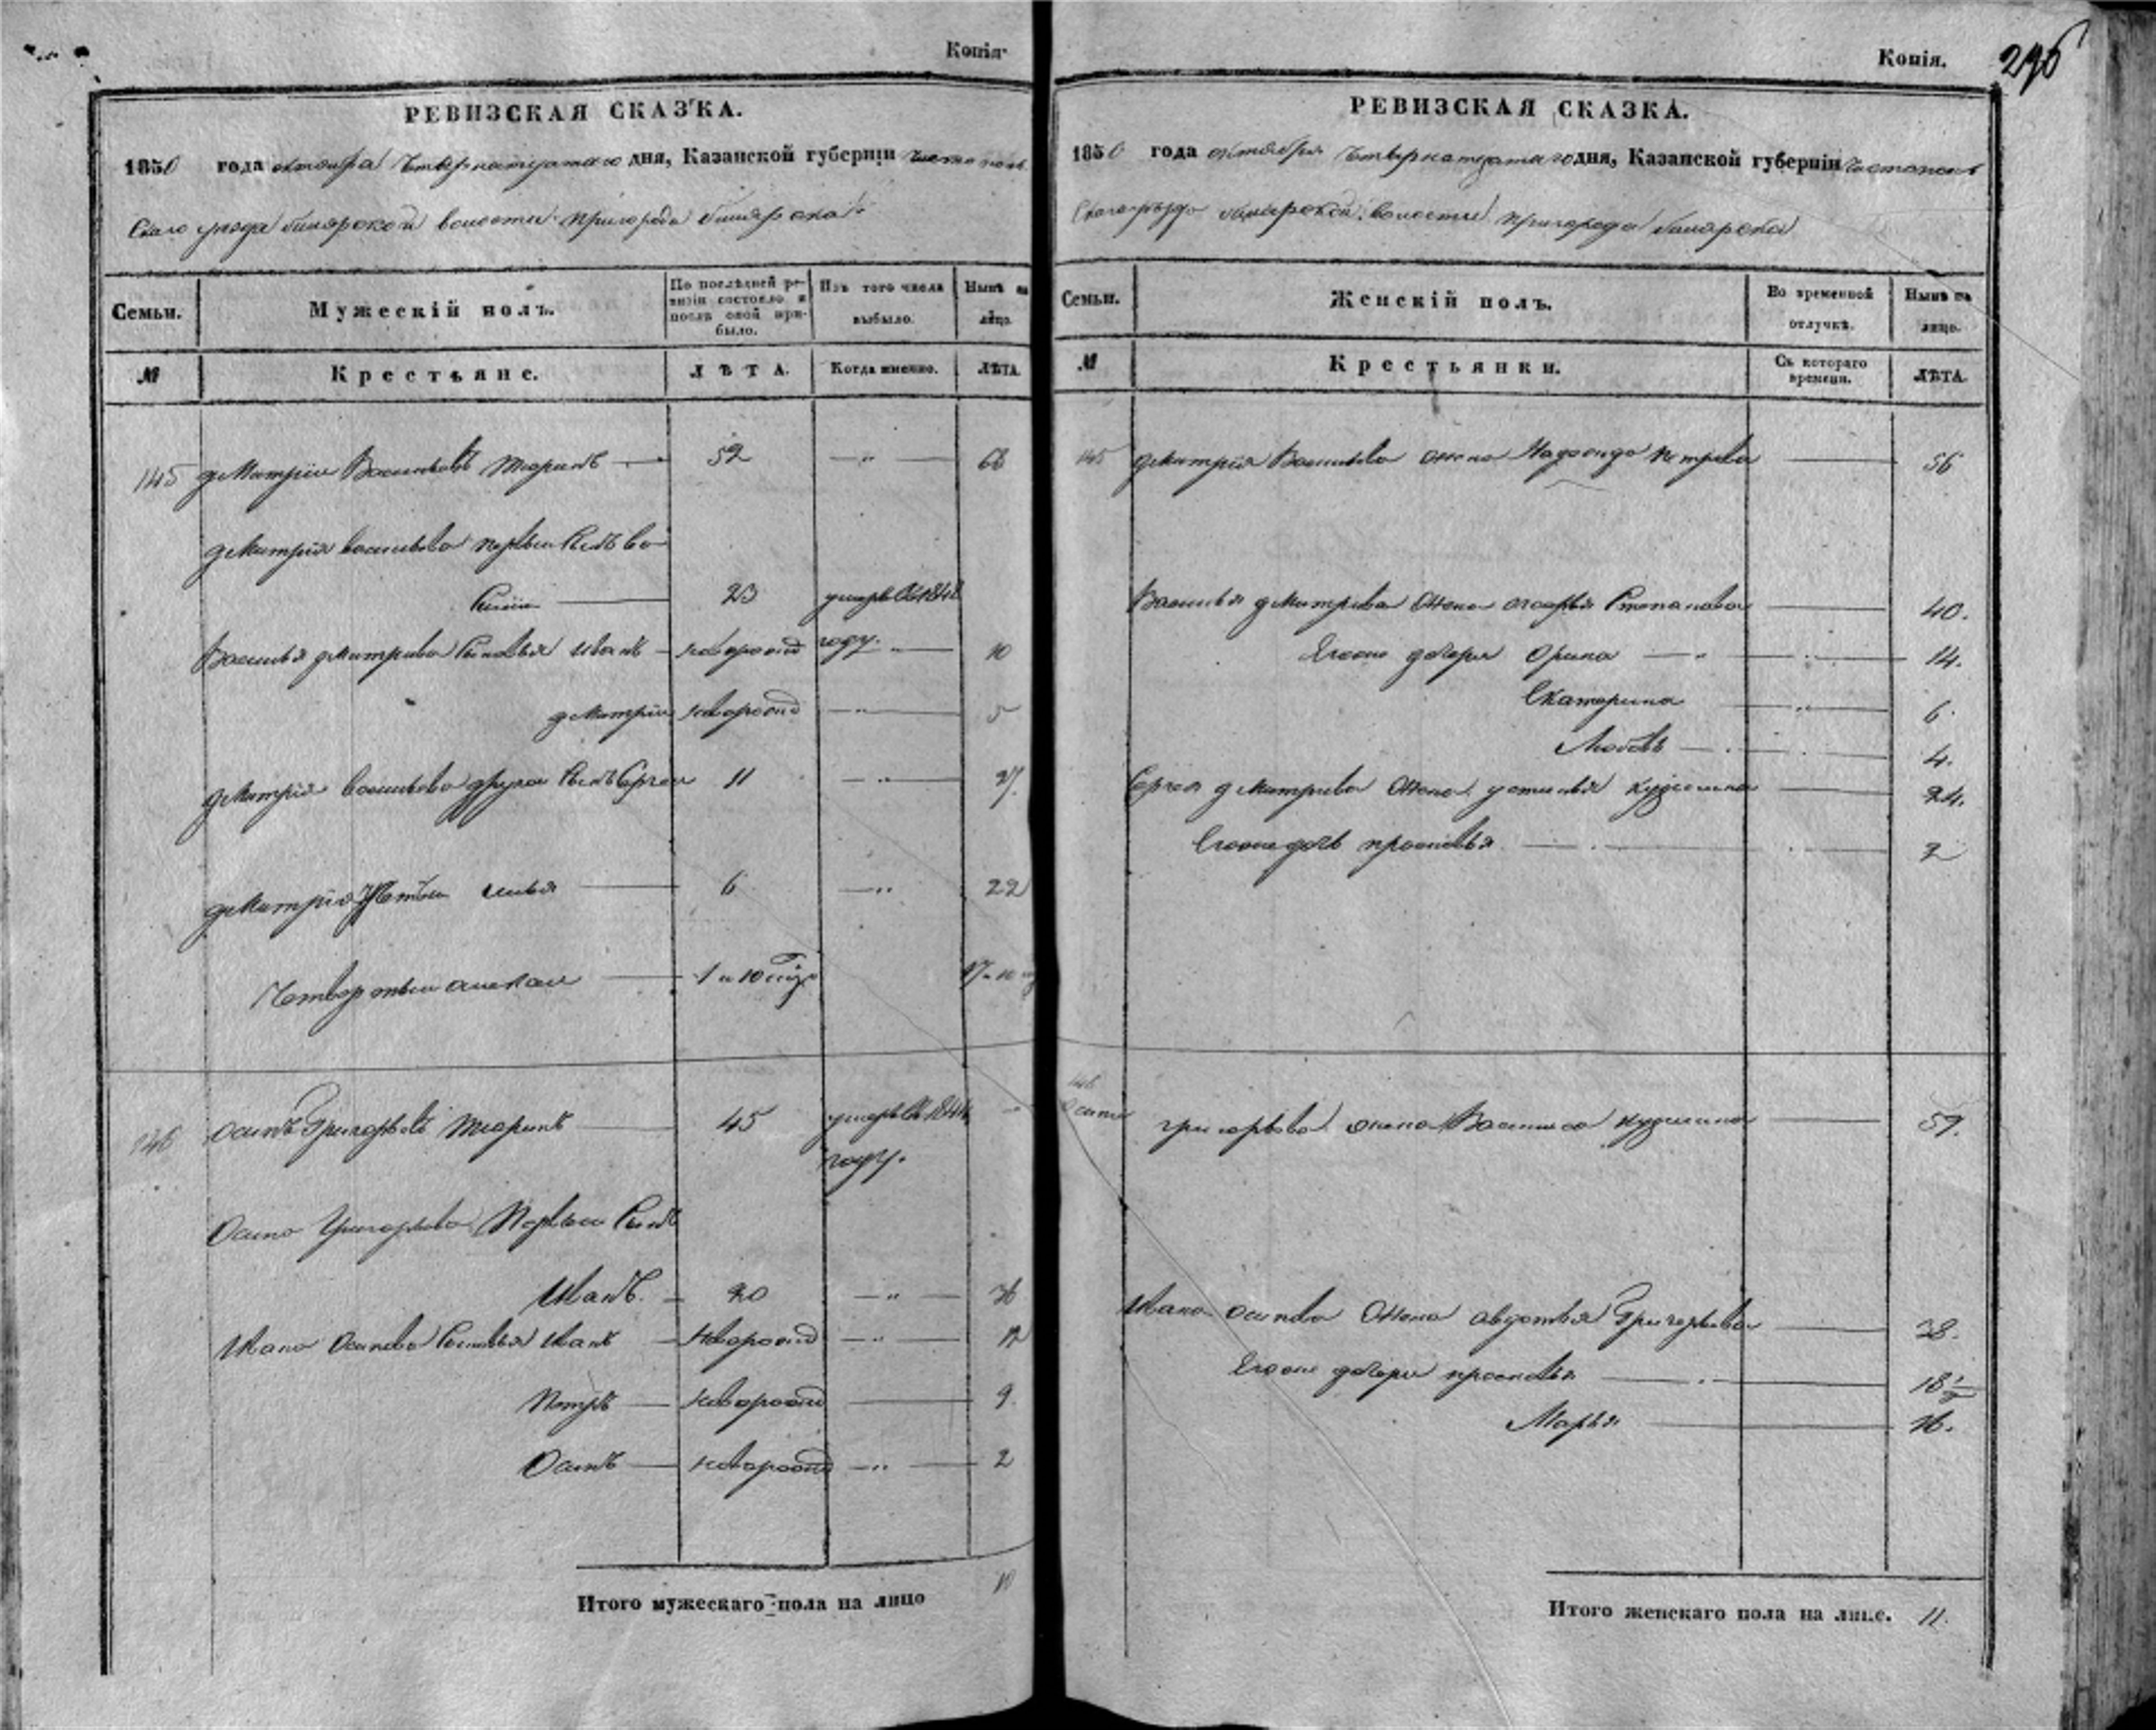 Копія.
РЕВИЗСКАЯ СКАЗКА.
1850 года октября четвернатцатаго дня, Казанской губерніи чистополь
скаго уезда билярской волости пригорода билярска
Семьи.
Мужескій полъ.
По послѣдней ре-
визіи состояло и
послѣ оной при-
было.
Изъ того числа
выбыло.
Нынѣ на
лицо.
№
Крестьяне.
ЛѢТА.
Когда именно.
ЛѢТА.
145 дмитрiи Васильевъ — 52 — " — 68
дмитрiя васильева первыи сынъ ва
силiи — 23 умеръ въ 1848
году.
Василья дмитриева сыновья иванъ — новорожд — " — 10
дмитрiи новорожд — " — 5
дмитрiя васильева другои сынъ Сергеи 11 — " — 27.
дмитрiя илья — 6 — " 22
Четвертыи — 1 и 10 17 и 10
146 осипъ Григорьевъ — 45 умеръ въ 1844
году.
Осипа Григорьева Первыи сынъ
Иванъ. — 20 — " — 36
Ивана Осипова Сыновья Иванъ — новорожд — " — 12
Петръ — новорожд — 9
Осипъ — новорожд — " — 2
Итого мужескаго пола на лицо 10
Копія.
296
РЕВИЗСКАЯ СКАЗКА.
1850 года октября четвернатцатаго дня, Казанской губерніи чистополь
скаго уезда билярской волости пригорода билярска
Семьи.
Женскій полъ.
Во временной
отлучкѣ.
Нынѣ на
лицо.
№
Крестьянки.
Съ котораго
времени.
ЛѢТА.
145 дмитрiя Васильева жена Надежда петрова — 56
Василья дмитриева жена Степанова — 40.
Егоже дочери Орина — " — 14.
Екатерина — " — 6.
Любовь — 4.
Сергея дмитриева жена устинья кузмина — 24.
Егоже дочь просковья — 2
146
Осипа григорьева жена Василиса кузмина — 59.
Ивана осипова жена авдотья Григорьева — 38.
Егоже дочери просковья — " — 18 1/2
Марья — 16.
Итого женскаго пола на лице. 11.